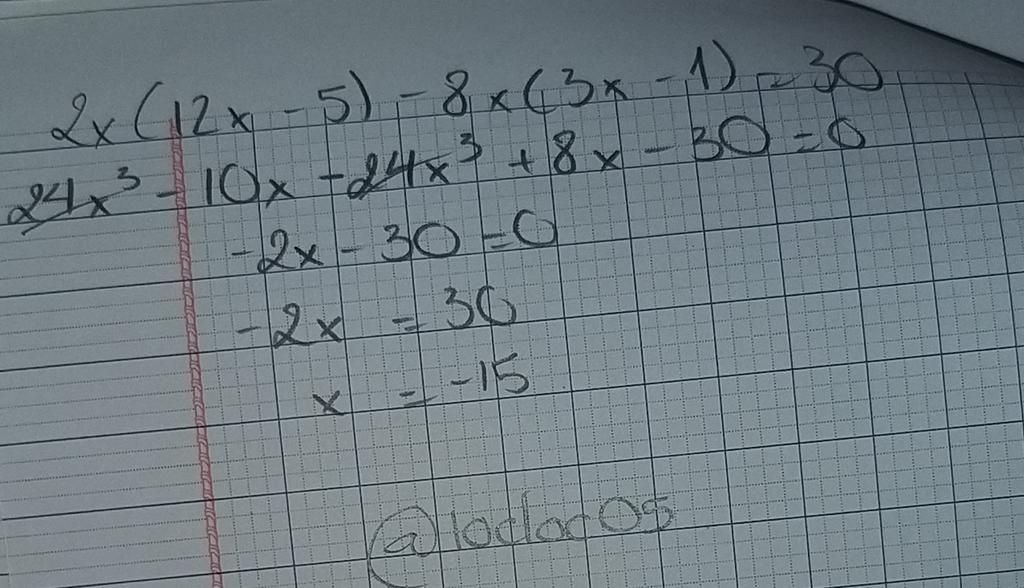 2x(12x - 5) - 8x(3x - 1) = 30
24x³ - 10x - 24x³ + 8x - 30 = 0
-2x - 30 = 0
-2x = 30
x = -15